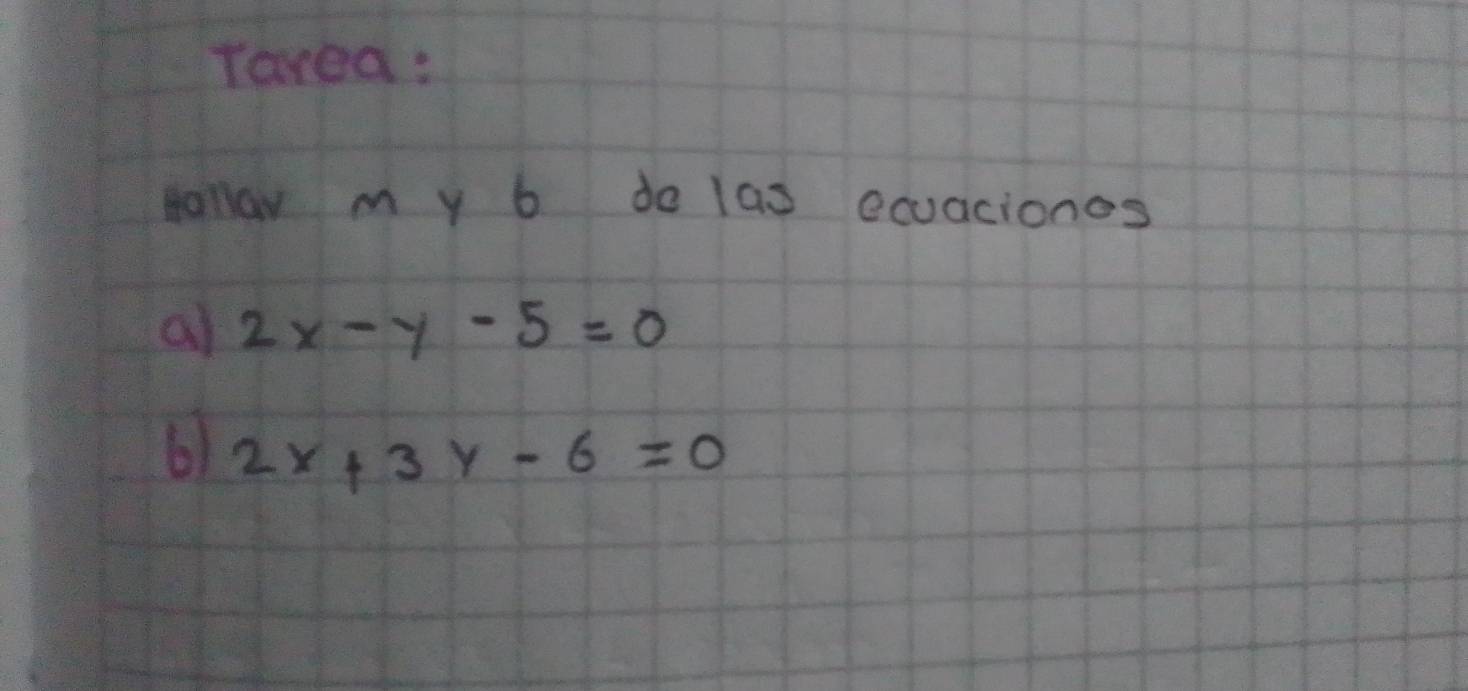 Tarea:
Hallar m y b de las ecuaciones
a) 2x - y - 5 = 0
b) 2x + 3y - 6 = 0